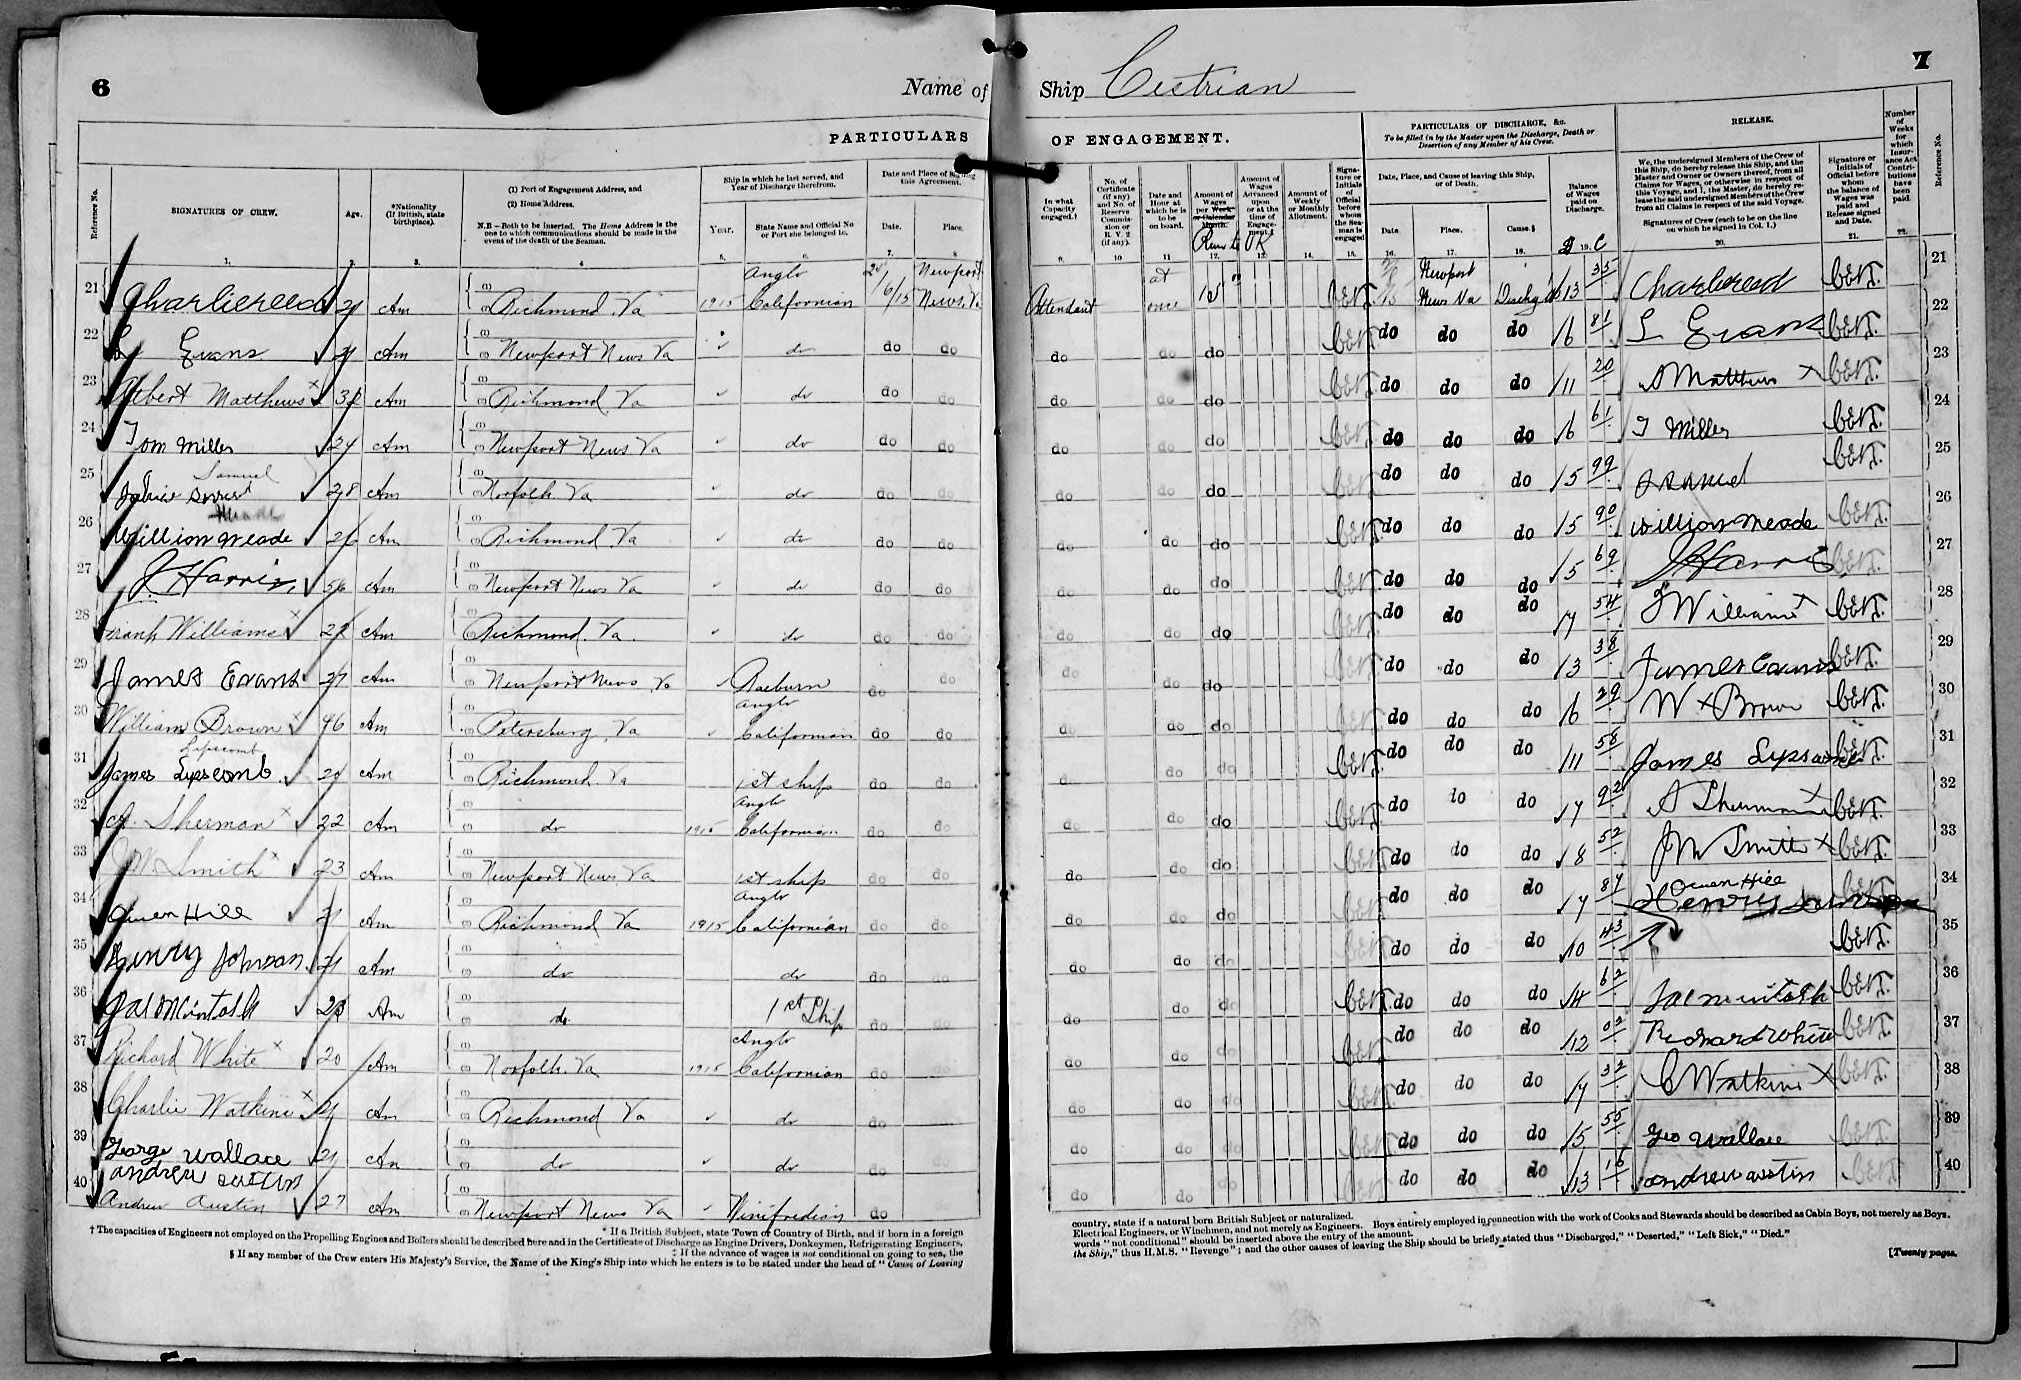 6
Name of
Ship Cestrian
7
PARTICULARS
OF ENGAGEMENT.
PARTICULARS OF DISCHARGE, &c.
To be filled in by the Master upon the Discharge, Death or Desertion of any Member of his Crew.
RELEASE.
Number of Weeks for which Insurance Act Contributions have been paid.
Reference No.
Reference No.
SIGNATURES OF CREW.
Age.
*Nationality (If British, state birthplace).
(1) Port of Engagement Address, and
(2) Home Address.
N.B.—Both to be inserted. The Home Address is the one to which communications should be made in the event of the death of the Seaman.
Ship in which he last served, and Year of Discharge therefrom.
Year.
State Name and Official No or Port she belonged to.
Date and Place of Signing this Agreement.
Date.
Place.
In what Capacity engaged.†
No. of Certificate (if any) and No. of Reserve Commission or R.V. 2 (if any).
Date and Hour at which he is to be on board.
Amount of Wages per Week or Calendar Month.
Run to UK
Amount of Wages Advanced upon or at the time of Engagement.‡
Amount of Weekly or Monthly Allotment.
Signature or Initials of Official before whom the Seaman is engaged
Date, Place, and Cause of leaving this Ship, or of Death.
Date.
Place.
Cause.§
Balance of Wages paid on Discharge.
We, the undersigned Members of the Crew of this Ship, do hereby release this Ship, and the Master and Owner or Owners thereof, from all Claims for Wages, or otherwise in respect of this Voyage, and I, the Master, do hereby release the said undersigned Members of the Crew from all Claims in respect of the said Voyage.
Signatures of Crew (each to be on the line on which he signed in Col. 1.)
Signature or Initials of Official before whom the balance of Wages was paid and Release signed and Date.
21 Charlie reed 21 Am Richmond Va 1915 Anglo Californian 6/15 Newport News, Va Attendant at once 15 Newport News Va 13 35 Charlie reed 21
22 Evans Am Newport News Va do do do do do do do do do 16 81 L Evans 22
23 Albert Matthews x Am Richmond, Va do do do do do do do do do 11 20 A Matthews x 23
24 Tom Miller 24 Am Newport News Va do do do do do do do do do 16 61 T Miller 24
25 Samuel 28 Am Norfolk Va do do do do do do do do do 15 99 25
26 William Meade 26 Am Richmond, Va do do do do do do do do do 15 90 William Meade 26
27 J. Harris, 56 Am Newport News Va do do do do do do do do do 15 69 J Harris 27
28 Frank Williams x Am Richmond, Va. do do do do do do do do do 17 54 F Williams x 28
29 James Evans 27 Am Newport News Va Raeburn do do do do do do do do 13 38 James Evans 29
30 William Brown x 46 Am Petersburg, Va Anglo Californian do do do do do do do do 16 29 W x Brown 30
31 Lipscomb
James Lipscomb 20 Am Richmond Va 1st ship do do do do do do do do 11 58 James Lipscomb 31
32 A. Sherman x 22 Am do 1915 Anglo Californian do do do do do do do 17 92 A Sherman x 32
33 J W Smith x 23 Am Newport News, Va 1st ship do do do do do do do do 18 52 J W Smith x 33
34 Owen Hill 21 Am Richmond Va 1915 Anglo Californian do do do do do do do do 17 87 Owen Hill 34
35 Henry Johnson 21 Am do do do do do do do do do do 10 43 35
36 Jas McIntosh Am do 1st Ship do do do do do do 14 62 Jas McIntosh 36
37 Richard White x 20 Am Norfolk, Va 1915 Anglo Californian do do do do do do do do 12 02 Richard White 37
38 Charlie Watkins x 21 Am Richmond Va do do do do do do do do 17 32 C Watkins x 38
39 George Wallace 21 Am do do do do do do do do 15 55 Geo Wallace 39
40 andrew austin
Andrew Austin 27 Am Newport News Va Winifredian do do do do do do 13 16 andrew austin 40
† The capacities of Engineers not employed on the Propelling Engines and Boilers should be described here and in the Certificate of Discharge as Engine Drivers, Donkeymen, Refrigerating Engineers,
* If a British Subject, state Town or Country of Birth, and if born in a foreign
‡ If the advance of wages is not conditional on going to sea, the
§ If any member of the Crew enters His Majesty's Service, the Name of the King's Ship into which he enters is to be stated under the head of "Cause of Leaving
country, state if a natural born British Subject or naturalized.
Electrical Engineers, or Winchmen, and not merely as Engineers. Boys entirely employed in connection with the work of Cooks and Stewards should be described as Cabin Boys, not merely as Boys.
words "not conditional" should be inserted above the entry of the amount.
the Ship," thus H.M.S. "Revenge"; and the other causes of leaving the Ship should be briefly stated thus "Discharged," "Deserted," "Left Sick," "Died."
[Twenty pages.